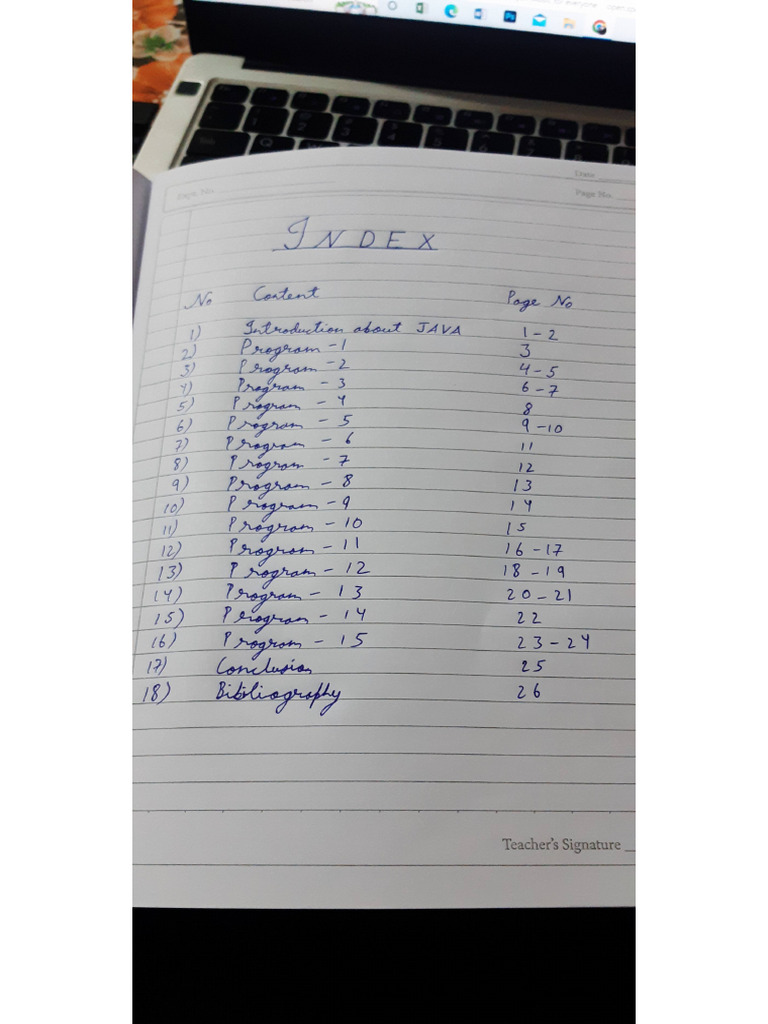 Date
Page No.
Page No.
INDEX
No Content Page No
1) Introduction about JAVA 1-2
2) Program - 1 3
3) Program - 2 4-5
4) Program - 3 6-7
5) Program - 4 8
6) Program - 5 9-10
7) Program - 6 11
8) Program - 7 12
9) Program - 8 13
10) Program - 9 14
11) Program - 10 15
12) Program - 11 16-17
13) Program - 12 18-19
14) Program - 13 20-21
15) Program - 14 22
16) Program - 15 23-24
17) Conclusion 25
18) Bibliography 26
Teacher's Signature